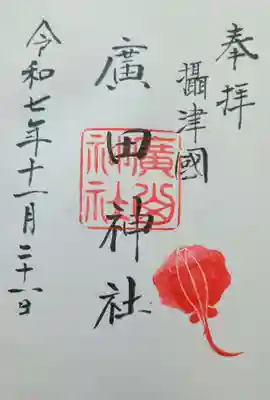 奉拝
攝津國
廣田神社
廣田
神社
令和七年十一月二十八日